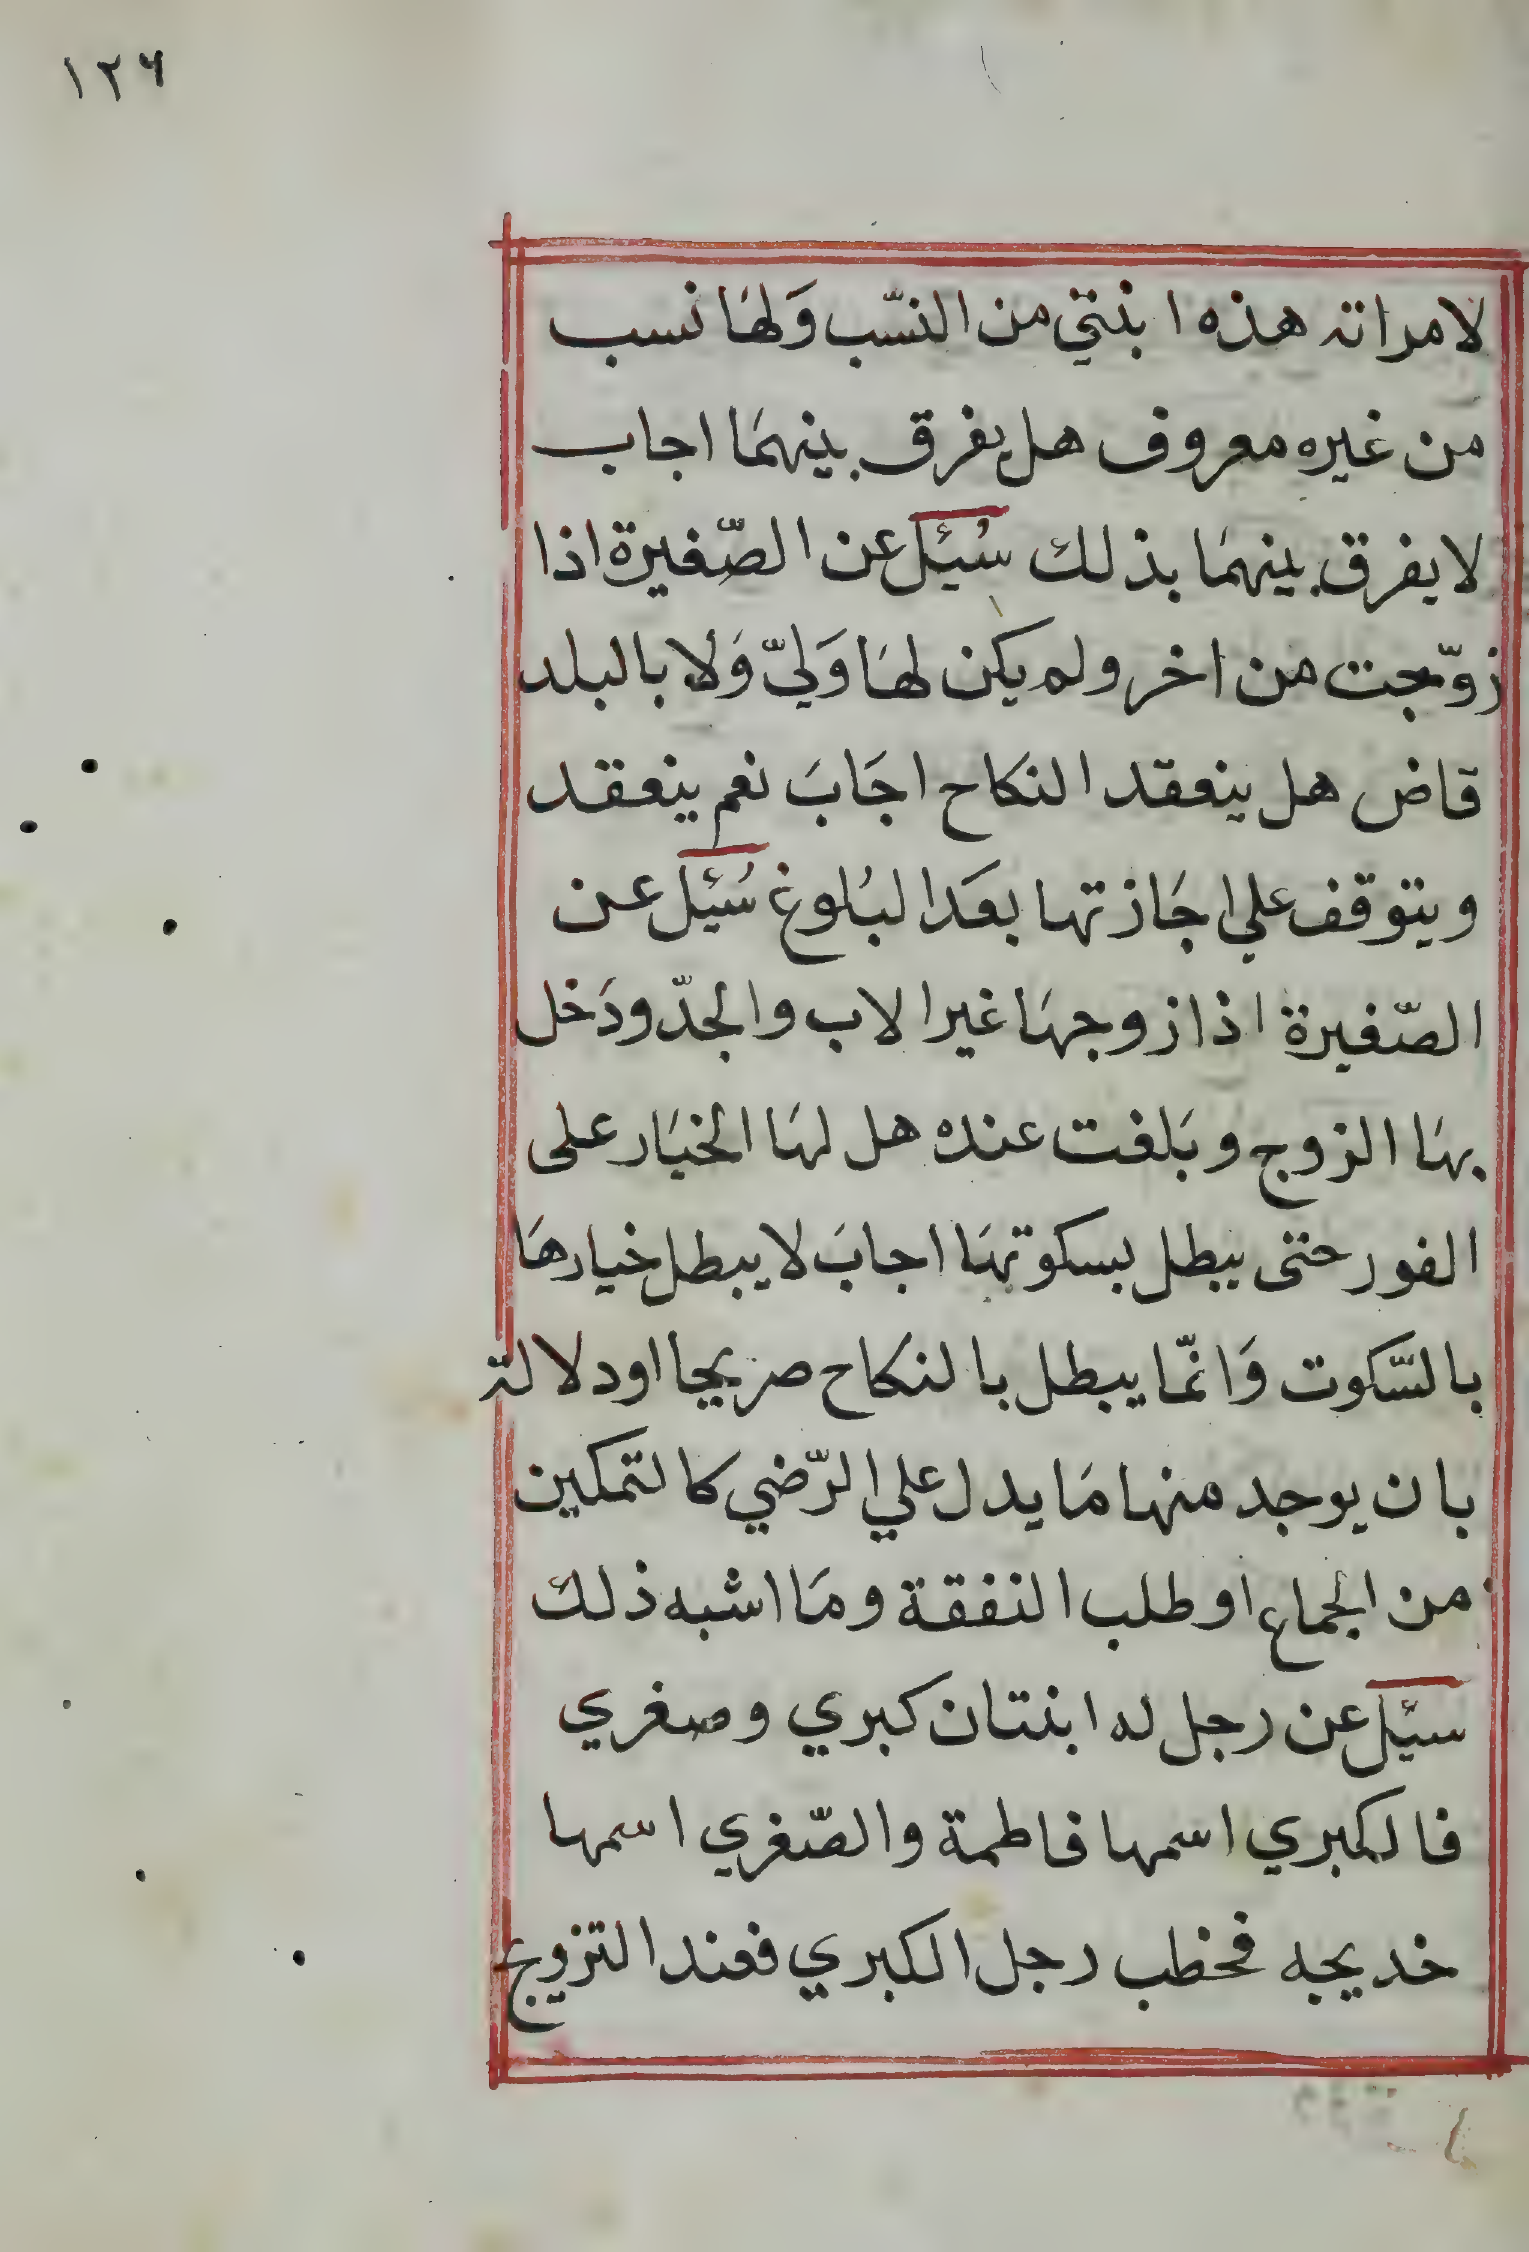 ١٢٦
لامراته هذه ابنتي من النسّب وَلهَا نسب
من غيره معروف هل يفرق بينهمَا اجاب
لا يفرق بينهمَا بذلك سُئِل عن الصّغيرة اذا
زوّجت من اخر ولم يكن لهَا وَليّ وَلا بالبلد
قاض هل ينعقد النكَاح اجَابَ نعم ينعقد
ويتوقف علي اجَازتها بعَد البُلوغ سُئِل عن
الصّغيرة اذا زوجهَا غير الاب والجدّ ودَخل
بهَا الزوج وبَلغت عنده هل لهَا الخيَار على
الفور حتى يبطل بسكوتهَا اجابَ لا يبطل خيارهَا
بالسّكوت وَانمّا يبطل بالنكاح صريحا او دلالة
بان يوجد منها مَا يدل علي الرّضي كالتمكين
من الجماع او طلب النفقة ومَا اشبه ذلك
سئل عن رجل له ابنتان كبري وصغري
فالكبري اسمها فاطمة والصّغري اسمها
خديجه فخطب رجل الكبري فعند التزوج